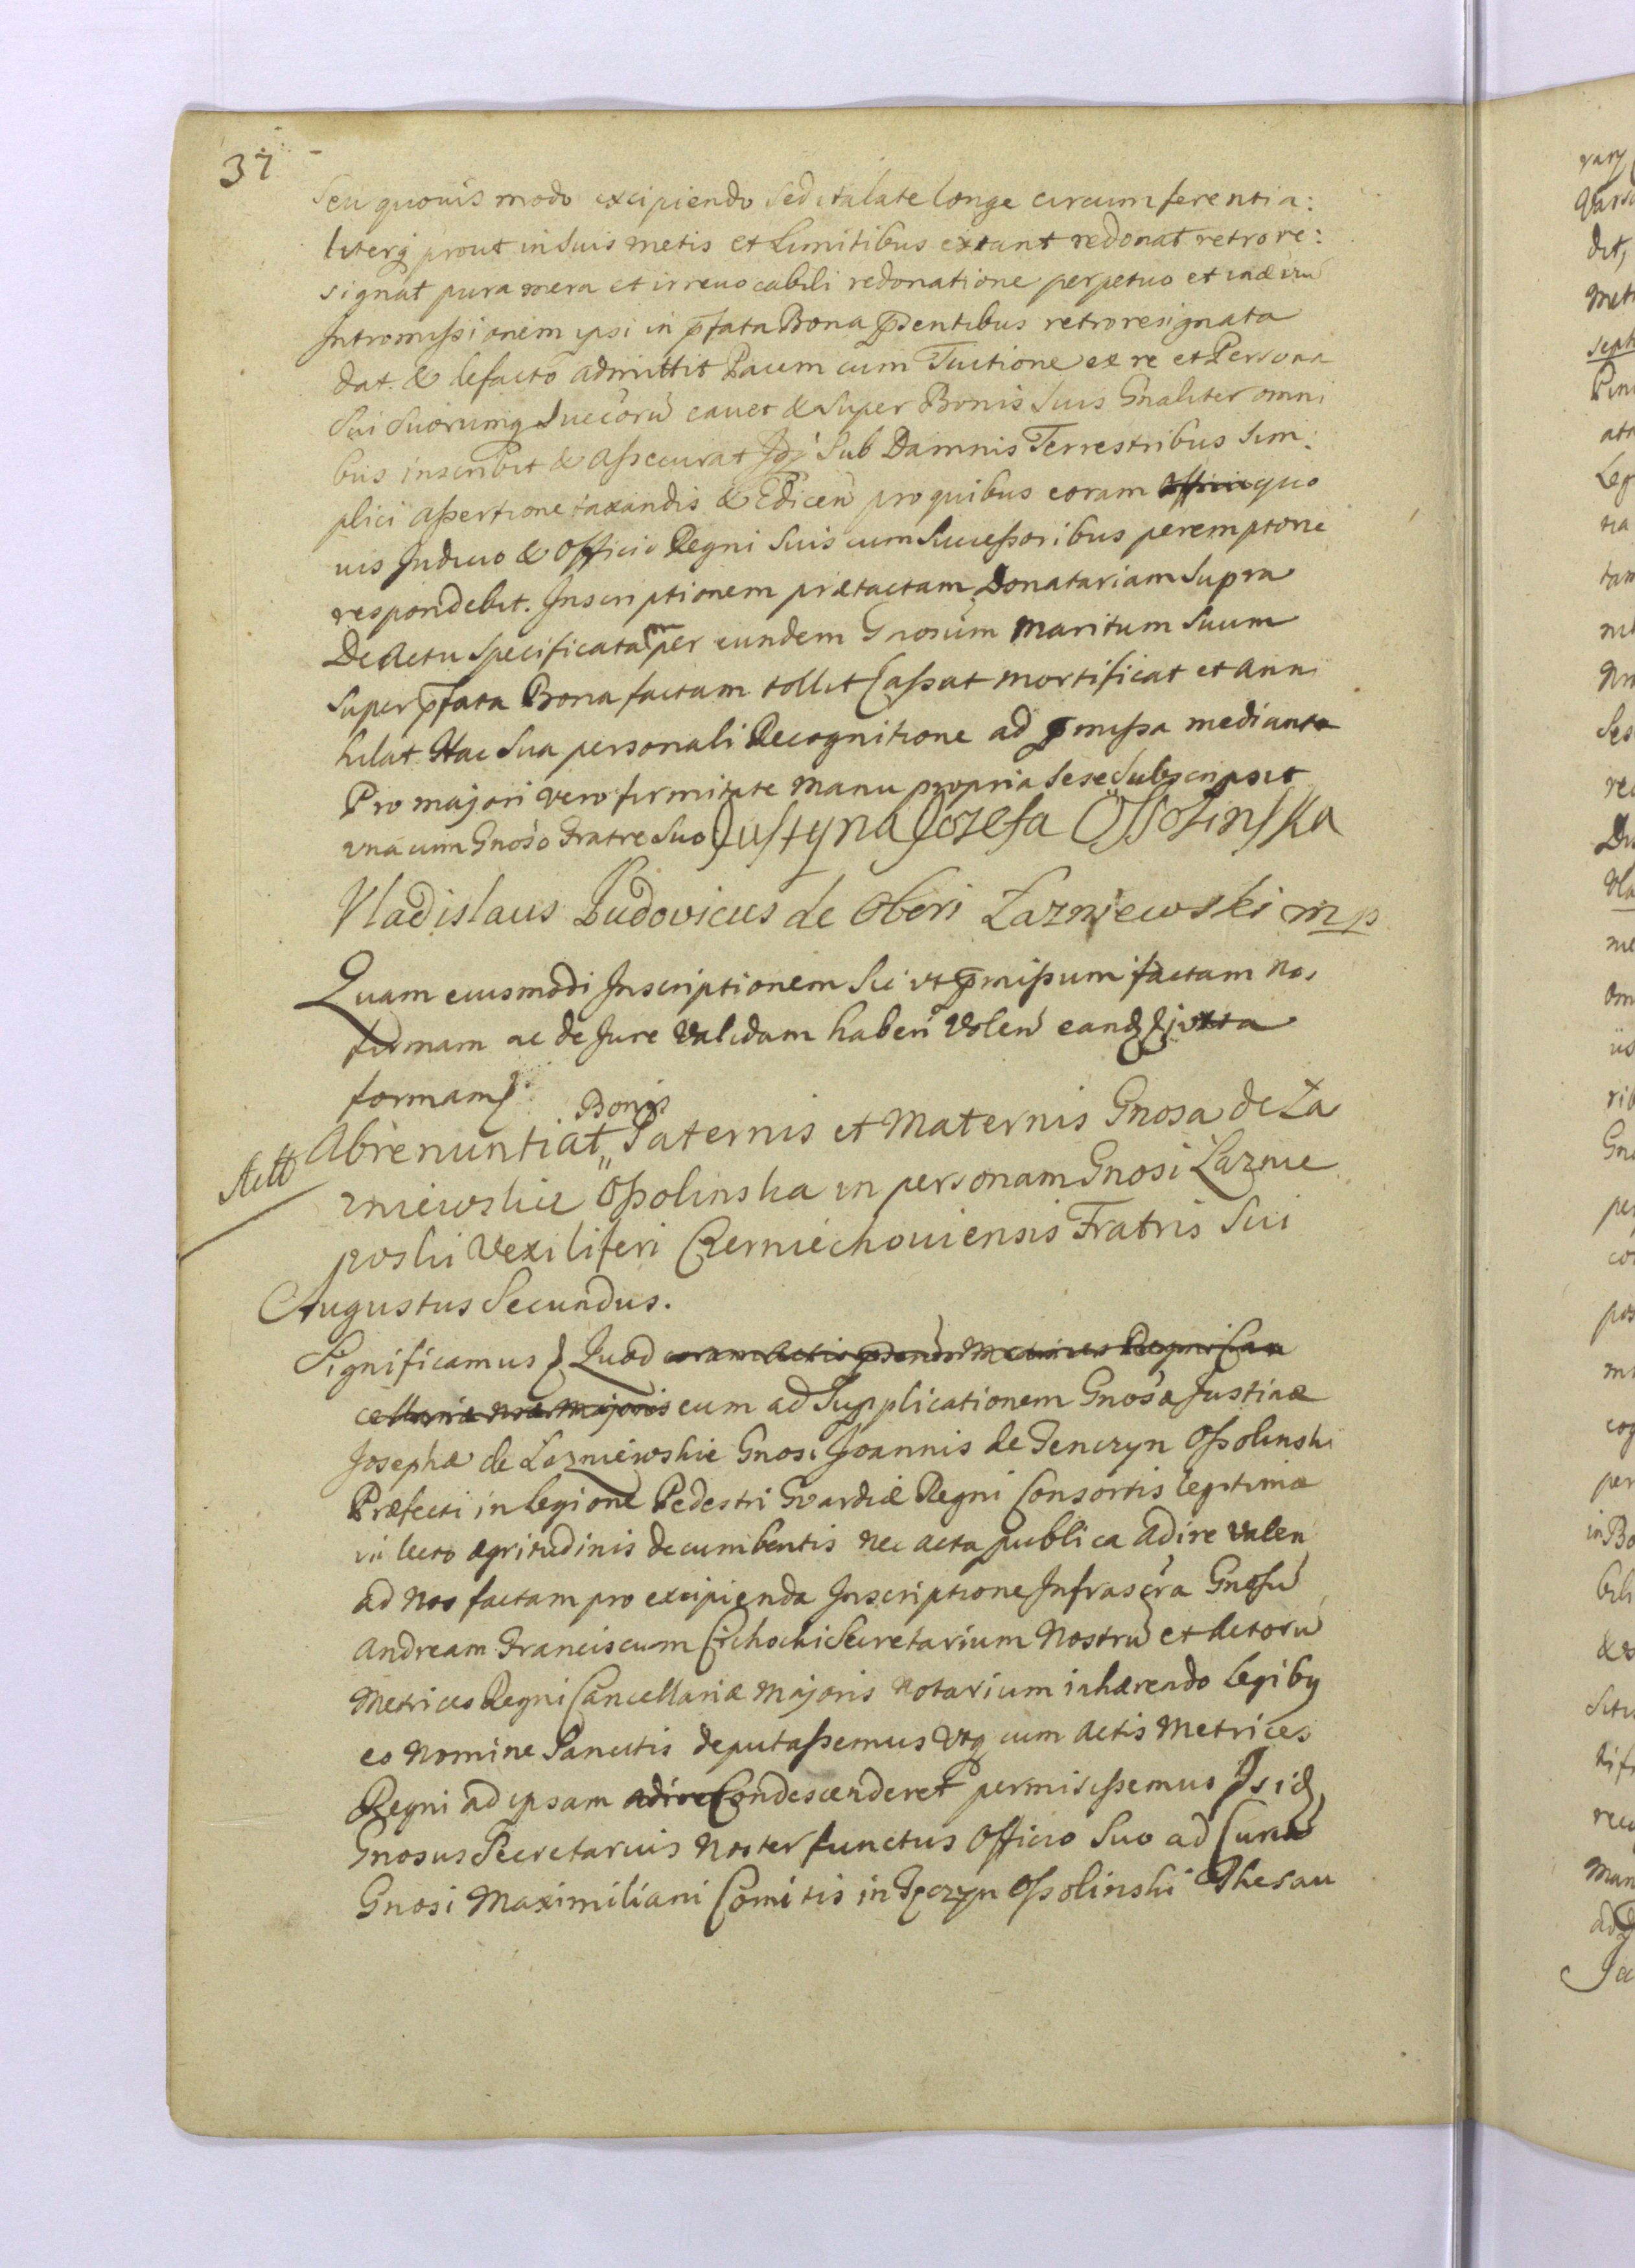 37
Seu quovis modo excipiendo Sed ita late longe circumferentia:
literq prout in Suis metis et Limitibus extant redonat retrore:
signat pura mera et irrevocabili redonatione perpetuo et in ævu
Intromissionem ipsi in pfata Bona pntibus retroresignata
dat & defacto admittit Pacem cum Tuitione ex re et Persona
Sui Suorumq Succoru cavet & Super Bonis Suis Gnaliter omni
bus inscribit & assecurat Sub Damnis Terrestribus Sim:
plici assertione taxandis & Edicen pro quibus coram officio quo
vis Judicio & Officio Regni Suis cum Successoribus peremptorie
respondebit. Inscriptionem prætactam Donatariam Supra
De Actu Specificatam per eundem Gnosum Maritum Suum
Super pfata Bona factam tollit Cassat mortificat et anni
hilat Hac Sua personali Recognitione ad pmissa mediante
Pro majori vero firmitate manu propria Sese Subscripsit
vna cum Gnoso Fratre Suo Justyna Jozefa Ossolinska
Vladislaus Ludovicus de Obori Łazniewski mp
Quam eiusmodi Inscriptionem Sic vt pmissum factam Nos
firmam ac de Jure Validam haben Volen eand iuxta
formam
Bonis
Abrenuntiat Paternis et Maternis Gnosa de Ła
Actt
zniewskie Ossolinska in personam Gnosi Łaznie
wski Vexiliferi Czerniechoviensis Fratris Sui
Augustus Secundus.
Significamus Quod coram Actis pntibus Metrices Regni Can
cellariæ nræ Majoris cum ad Supplicationem Gnosa Justinæ
Josephæ de Łazniewskie Gnosi Joannis de Tenczyn Ossolinski
Præfecti in Legione Pedestri Gvardiæ Regni Consortis legitimæ
in lecto ægritudinis decumbentis nec acta publica adire valen
ad Nos factam pro excipienda Inscriptione Infrascra Gnosu
Andream Franciscum Cichocki Secretarium Nostru et Actoru
Metrices Regni Cancellariæ Majoris Notarium inhærendo Legibq
eo Nomine Sancitis deputassemus Vtq cum Actis Metrices
Regni ad ipsam adire Condescenderet permisissemus Isid
Gnosus Secretarius Noster functus Officio Suo ad Curia
Gnosi Maximiliani Comitis in Tęczyn Ossolinski Thesau